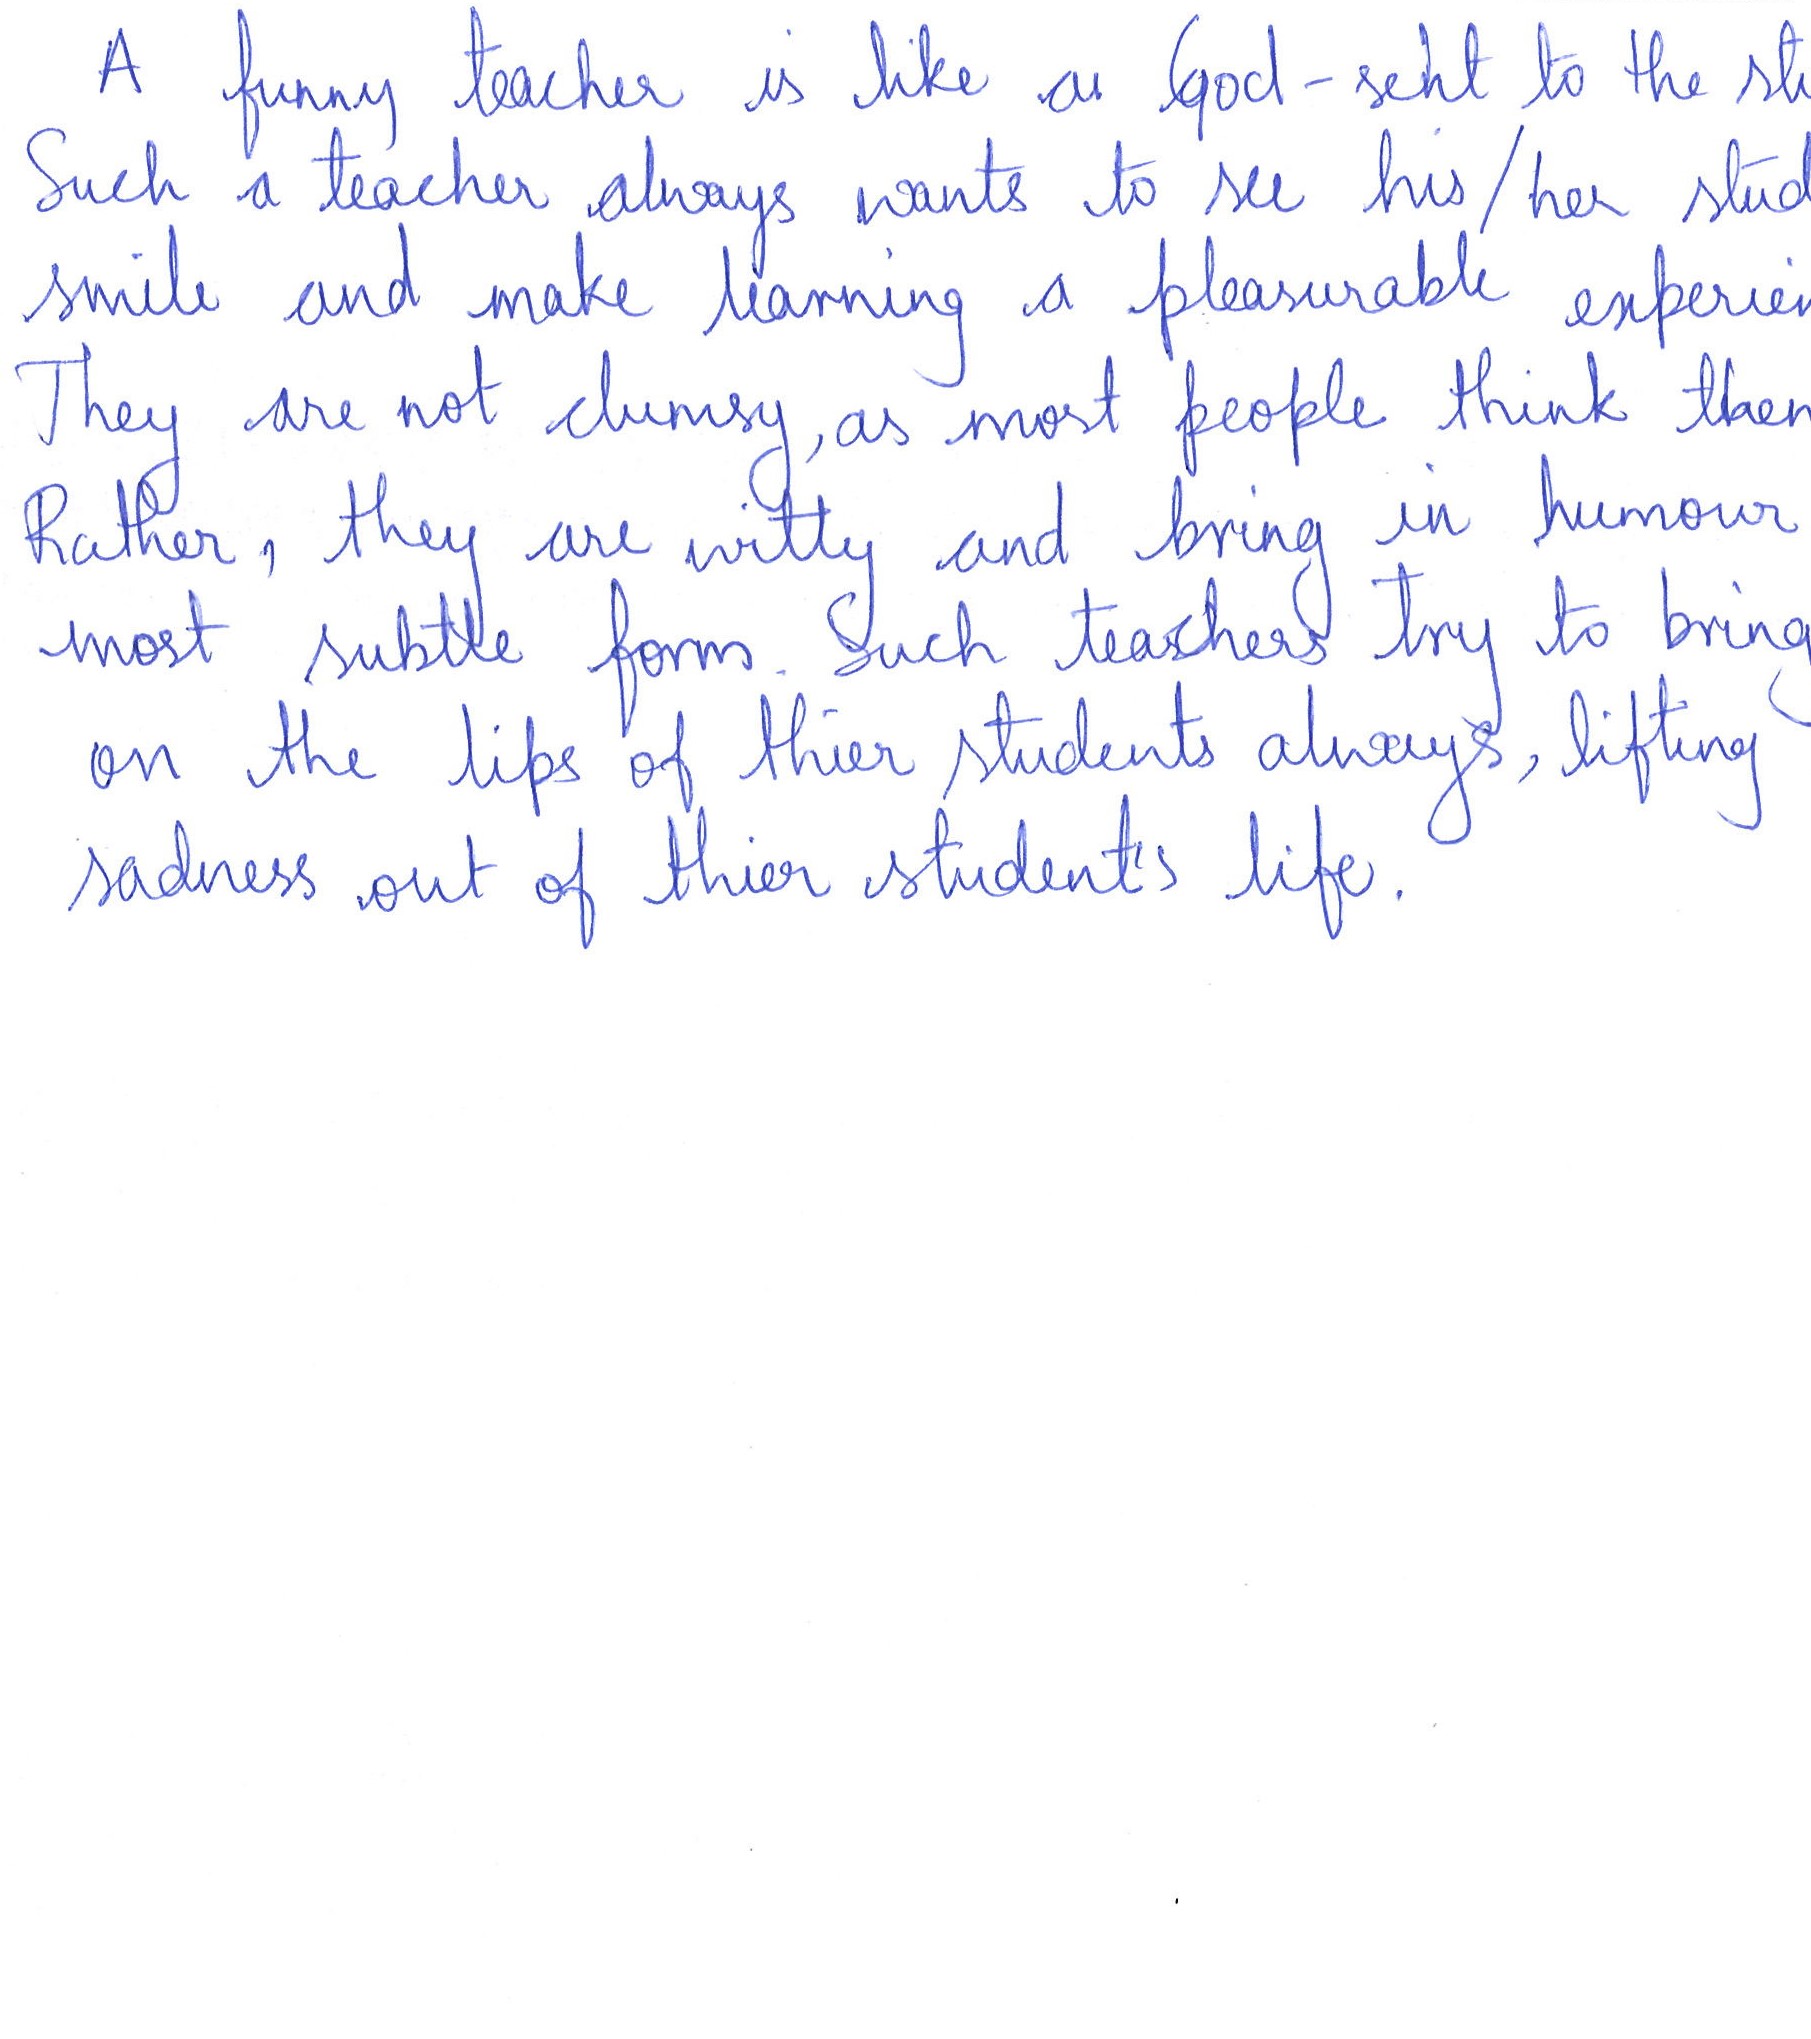 A funny teacher is like a God-sent to the stu
Such a teacher always wants to see his/her stud
smile and make learning a pleasurable experien
They are not clumsy, as most people think them
Rather, they are witty and bring in humour
most subtle form. Such teachers try to bring
on the lips of thier students always, lifting
sadness out of thier student's life.